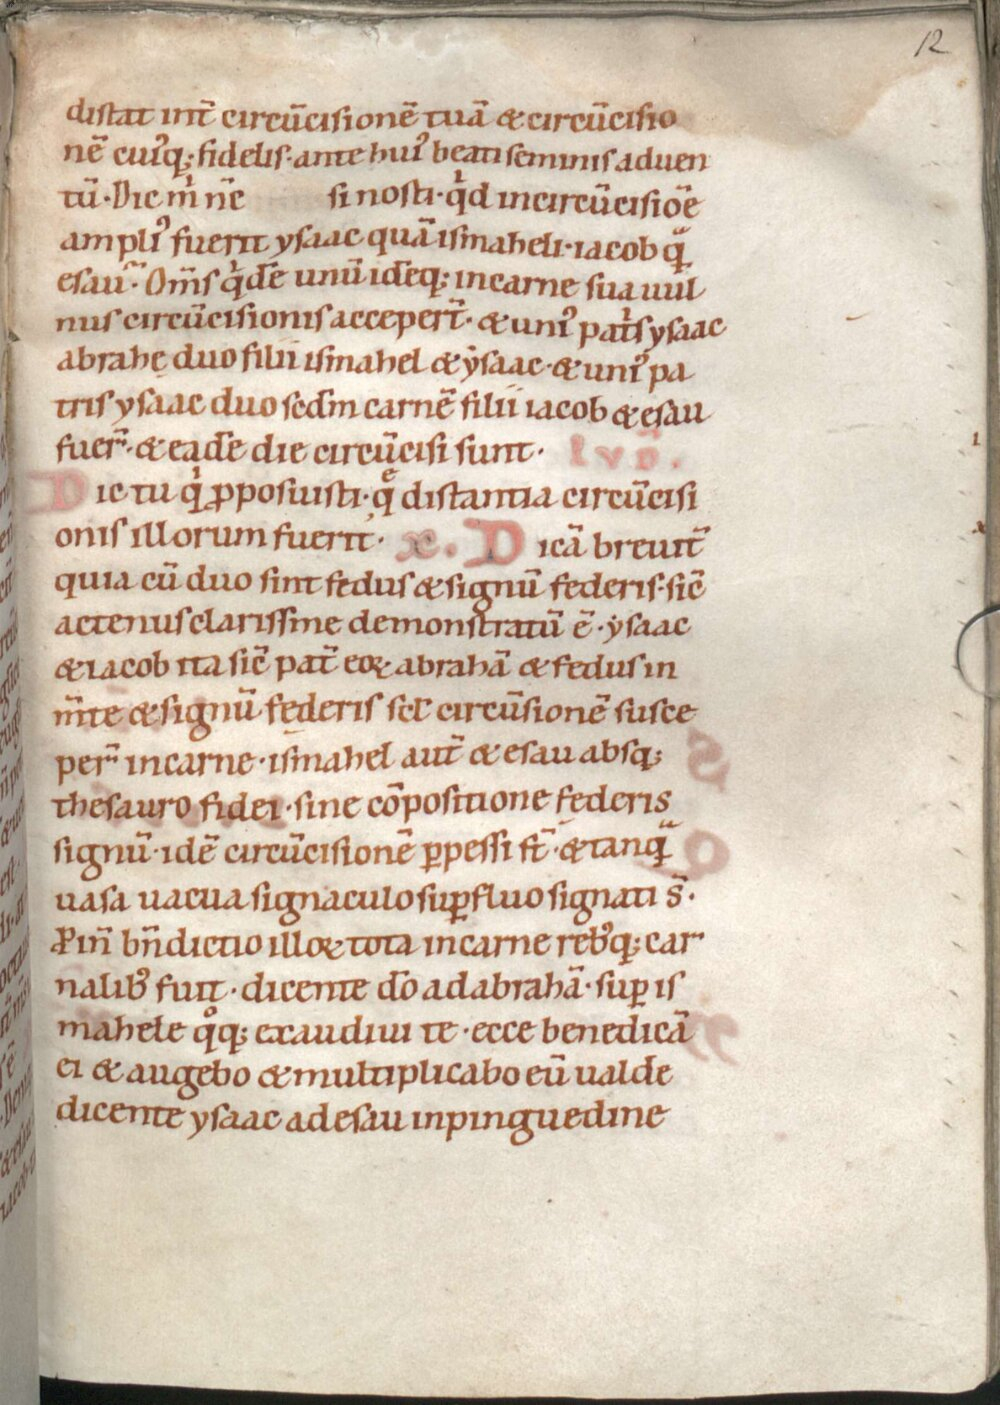 12
distat int̄ circūcisionē tuā & circūcisio
nē cuiꝰq; fidelis· ante huiꝰ beati seminis aduen
tū· Dic m̄ nē si nosti· qͥd in circūcisiōe
ampliꝰ fuerit ysaac quā ismaheli· iacob qᷓ
esau· Om̄s qͥdē unū idēq; in carne sua uul
nus circūcisionis acceper̄t· & uniꝰ pat̄s ysaac
abrahę duo filii ismahel & ysaac· & uniꝰ pa
tris ysaac duo scd̄m carnē filii iacob & esau
fuer̄· & eadē die circūcisi sunt· Ivd̄.
Dic tu qͥ ꝓposuisti· qͤ distantia circūcisi
onis illorum fuerit· x. Dicā breuit̄
quia cū duo sint fedus & signū federis· sic̄
actenus clarissime demonstratū ē· ysaac
& iacob ita sic̄ pat̄ eoꝝ abrahā & fedus in
m̄te & signū federis scl̄ circūsionē susce
per̄ in carne· ismahel aut̄ & esau absq;
thesauro fidei· sine cōpositione federis
signū· idē circūcisionē ꝑpessi st̄· & tanqᷓ
uasa uacua signaculo suꝑfluo signati s̄·
Proin̄ bn̄dictio illoꝝ tota in carne rebꝰq; car
nalibꝰ fuit· dicente do ad abrahā· suꝑ is
mahele qͦq; exaudiui te· ecce benedicā
ei & augebo & multiplicabo eū ualde
dicente ysaac ad esau in pinguedine